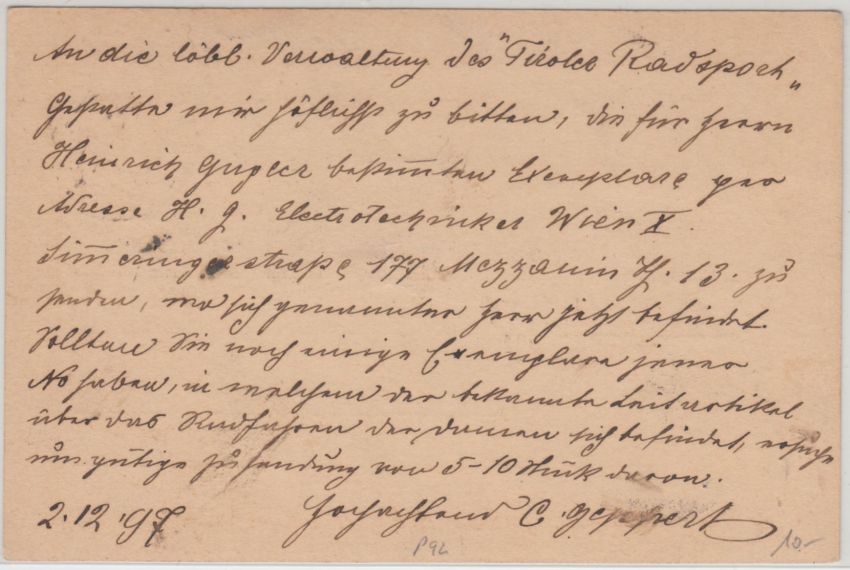 An die löbl. Verwaltung des "Tiroler Radsport"
Gestatte mir höflichst zu bitten, die für Herrn
Heinrich bestimmten Exemplare per
Adresse H. G. Electrotechniker Wien X.
Simmeringerstraße 177 Mezzanin Th. 13. zu
senden, wo sich genannter Herr jetzt befindet.
Sollten Sie noch einige Exemplare jener
No haben, in welchem der bekannte Leitartikel
über das Radfahren der Damen sich befindet, ersuche
um gütige Zusendung von 5-10 Stück davon.
2.12.97 Hochachtend C. Geppert
P92 10.-